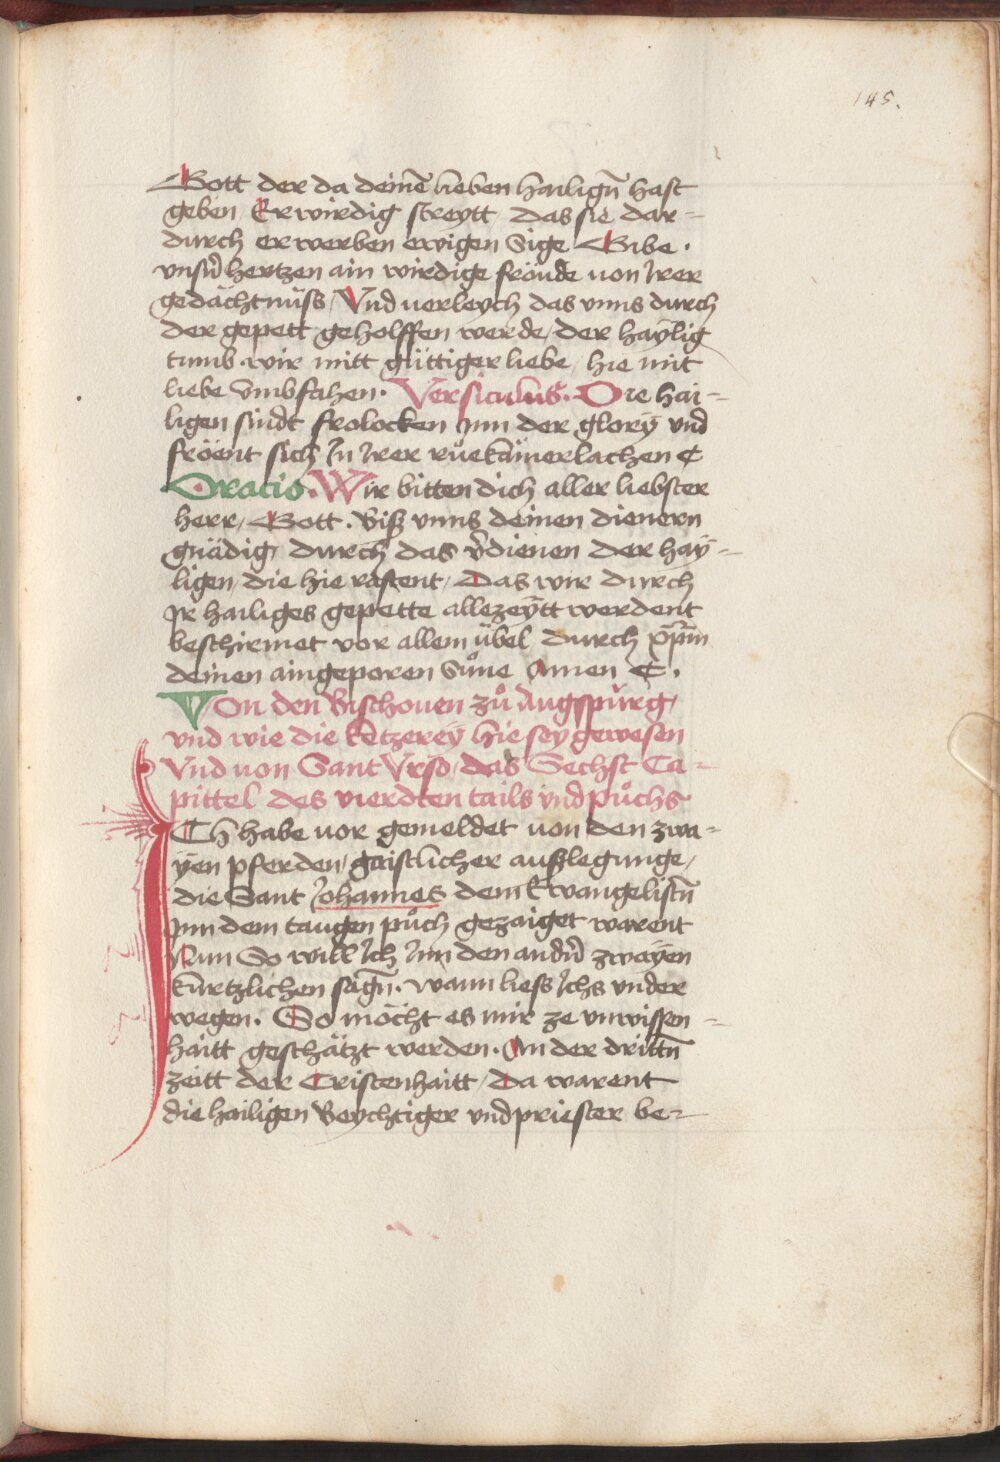 145.
Gott der da deinē lieben hailigñ hast
geben Erwirdig streytt, das sie dar-
durch erwerben ewigen Sige Gibe.
vnsñ hertzen ain wirdige fröude uon Irer
gedächtnüss, Vnd uerleych das vnns durch
der gepett geholffen werde, der haÿlig
tumb wir mitt güttiger liebe, hie mit
liebe vmbfahen. Versiculus. Die hai-
ligen sindt frolocken Inn der glorÿ vnd
fröent sich In Irer růekämerlachen C
Oracio. Wir bitten dich aller liebster
herr, Gott. Biß vnns deinen dienern
gnädig, durch das v̄dienen der haÿ-
ligen, die hie rastent, Das wir durch
Ir hailiges gepette allezeÿtt werdent
beschirmet vor allem übel durch xp̄m
deinen aingeporen Sůne Amen C.
VOn den Bischouen zů Augspůrg,
vnd wie die ketzereÿ hie seÿ gewesen
Vnd uon Sant Vrso, das Sechst Ca-
pittel des vierdten tails vnd půchs
ICh habe uor gemeldet uon den zwa-
ÿen pferden, gaistlicher außlegunge,
die Sant Johannes dem Ewangelistñ
Inn dem taugen půch gezaiget warent
Nun So will Ich Inn den andñ zwaÿen
kürtzlichen sagñ. wann liess Ichs vnder
wegen. So möcht es mir ze vnwissen-
haitt geschätzt werden. An der drittñ
zeitt der Cristenhaitt, Da warent
die hailigen Beychtiger vnd priester be-